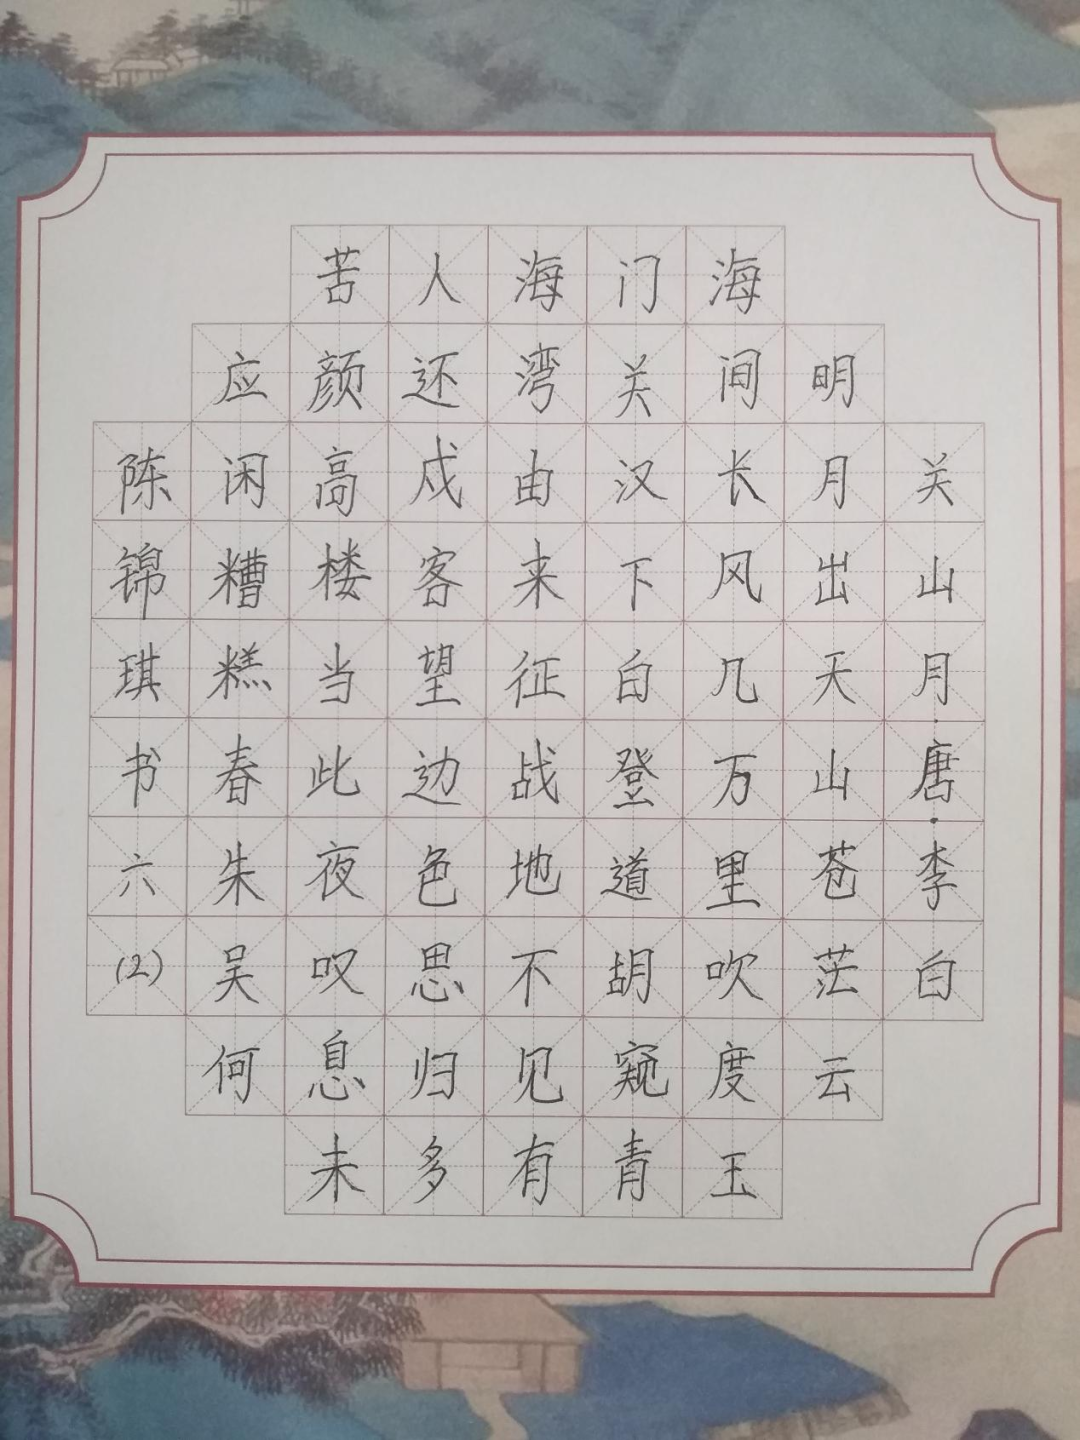 关山月·唐·李白
明月出天山苍茫云
海间长风几万里吹度玉
门关汉下白登道胡窥青
海湾由来征战地不见有
人还戍客望边色思归多
苦颜高楼当此夜叹息未
应闲糟糕春朱吴何
陈锦琪书六(2)